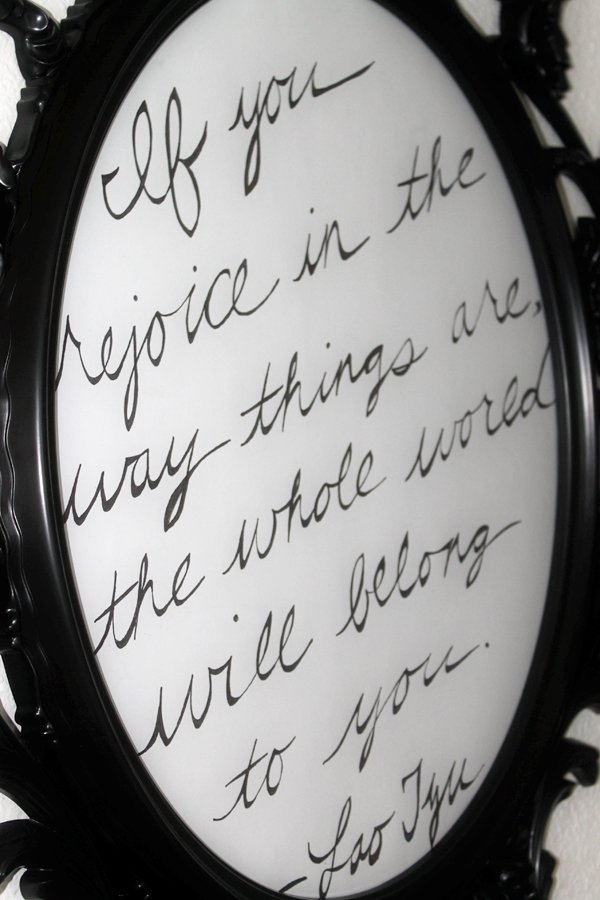 If you
rejoice in the
way things are,
the whole world
will belong
to you.
- Lao Tzu